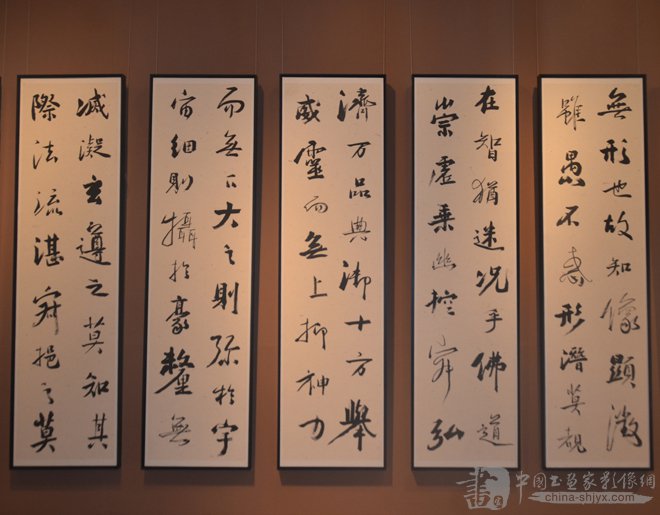 無形也故知像顯徵
雖愚不惑形潛莫覩
在智猶迷況乎佛道
崇虛乘幽控寂弘
濟万品典御十方舉
威靈而無上抑神力
而無下大之則弥於宇
宙細則攝於豪釐無
滅凝玄遵之莫知其
際法流湛寂挹之莫
書 中國书画家影像網
china-shjyx.com